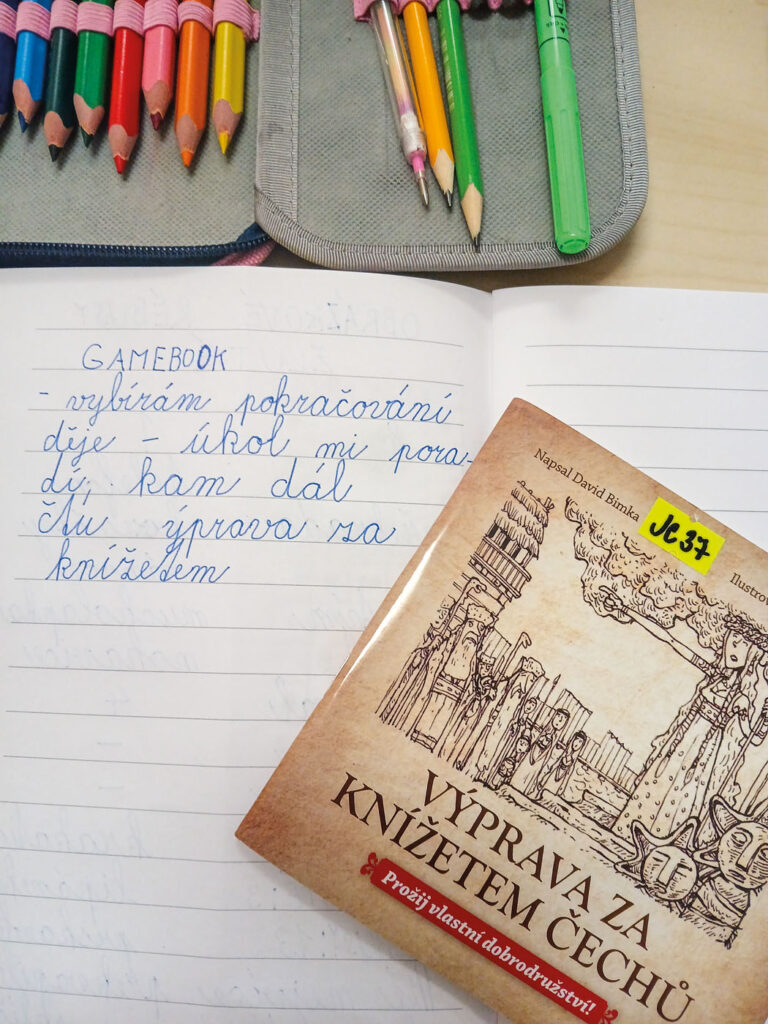 GAMEBOOK
- vybírám pokračování
děje - úkol mi pora-
dí, kam dál
čtu ýprava za
knížetem
Napsal David Bimka
JC 37
Ilustrov
VÝPRAVA ZA
KNÍŽETEM ČECHŮ
Prožij vlastní dobrodružství!